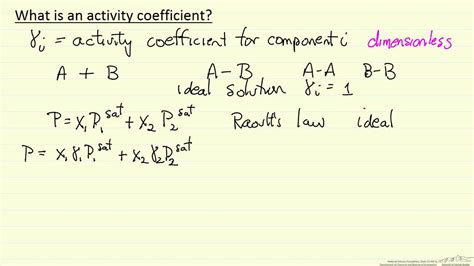 What is an activity coefficient?
γi = activity coefficient for component i dimensionless
A + B A-B A-A B-B
ideal solution γi = 1
P = x1 P1^sat + x2 P2^sat Raoult's law ideal
P = x1 γ1 P1^sat + x2 γ2 P2^sat